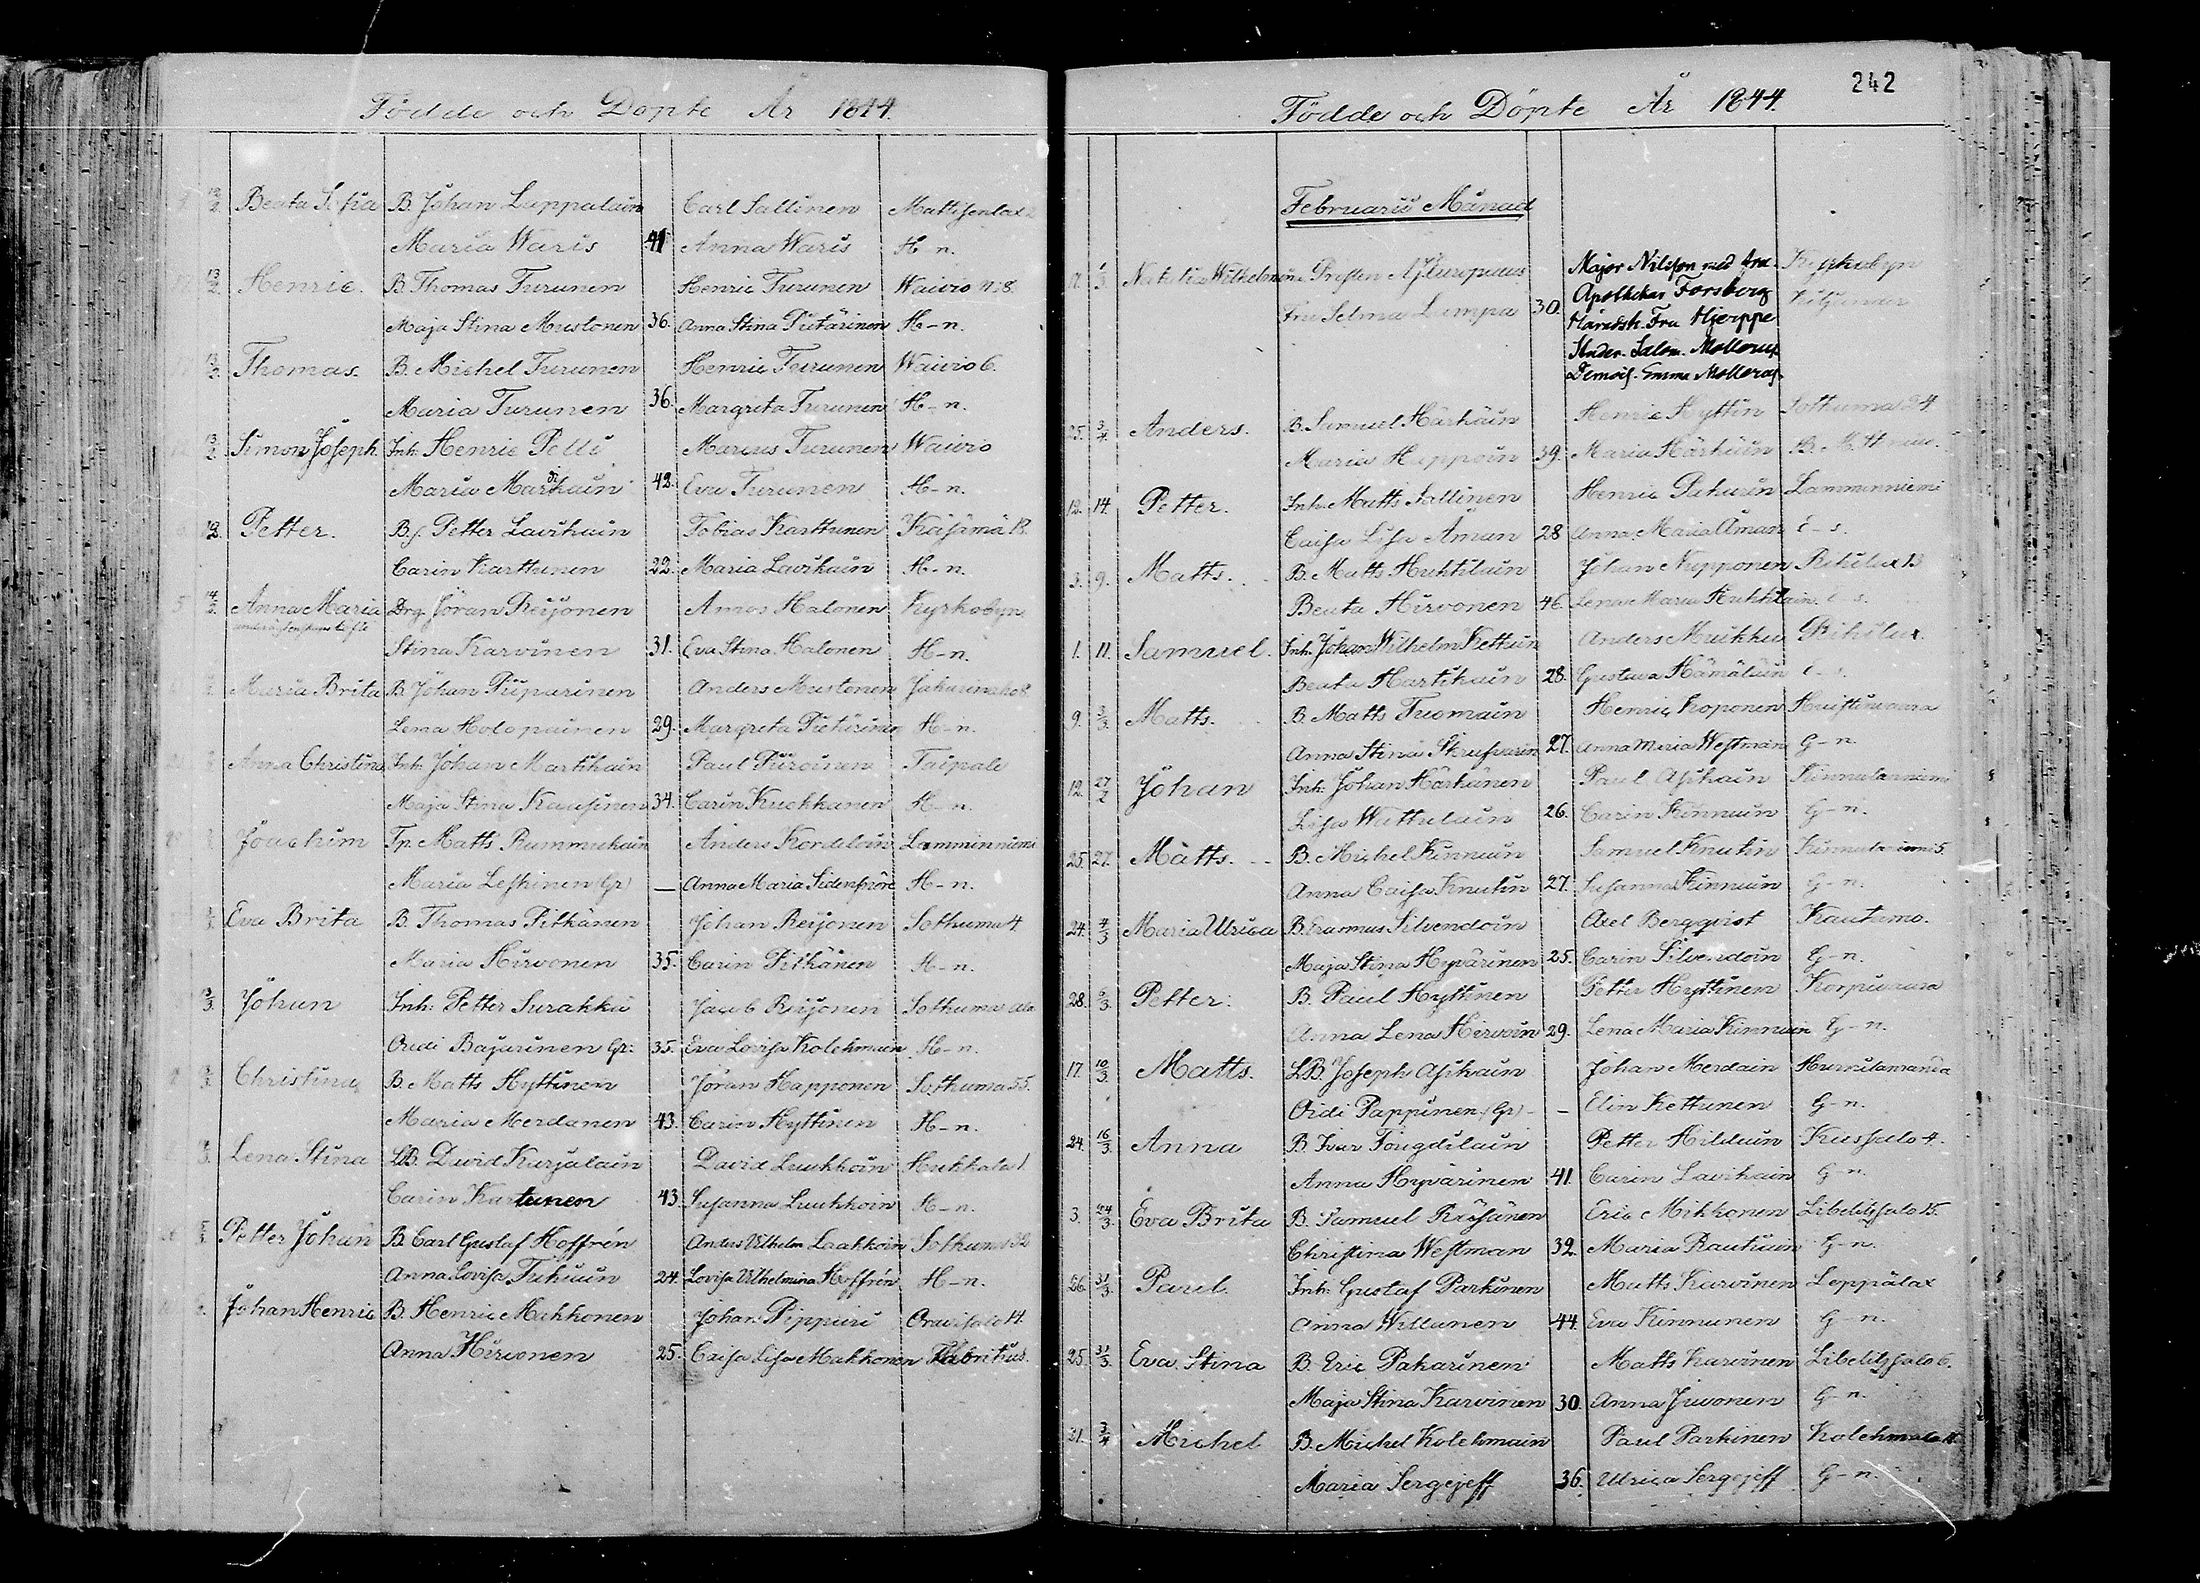 Födde och Döpte År 1844.
Beata Sofia B. Johan Lappalain Carl Sallinen Mattisenlax
Maria Waris 41 Anna Waris H-n.
13/2 Henric. B. Thomas Turunen Henric Turunen Waivio 28.
Maja Stina Mustonen 36. Anna Stina Pietärinen H-n.
13/2 Thomas. B. Michel Turunen Henric Turunen Waivio 6.
Maria Turunen 36. Margreta Turunen H-n.
13/2 Simon Joseph. Inh. Henric Pelli Marcus Turunen Waivio
Maria 42. Eva Turunen H-n.
Petter. Petter Lavikain Tobias Karttunen Käsämä 18.
Carin Karttunen 22. Maria Lavikain H-n.
Anna Maria Drg. Jöran Reijonen Amos Halonen Kyrkobyn
Stina Karvinen 31. Eva Stina Halonen H-n.
Maria Brita B. Johan Piiparinen Anders Mustonen 8.
Lena Holopainen 29. Margreta H-n.
Anna Christina Inh. Johan Martikain Paul Puroinen Taipale
Maja Stina Kausinen 34. Carin Kuokkanen H-n.
Joachim Tp. Matts Rummukain Anders Kordelain Lamminniemi
Maria Leskinen (Gr) — Anna Maria H-n.
Eva Brita B. Thomas Pitkänen Johan Reijonen Sotkuma 4
Maria Hirvonen 35. Carin Pitkänen H-n.
Johan Inh. Petter Surakka Jacob Reijonen Sotkuma
Oudi Bajarinen Gr: 35. Eva Lovisa Kolehmain H-n.
Christina B. Matts Hyttinen Jöran Happonen Sotkuma 55.
Maria Merdanen 43. Carin Hyttinen H-n.
Lena Stina LB. David Karjalain David Luukkoin Hukkala 1.
Carin Kartunen 43. Susanna Luukkoin H-n.
Petter Johan B. Carl Gustaf Hoffrén Anders Vilhelm Laakkoin Sotkuma 32
Anna Lovisa Tukiain 24. Lovisa Vilhelmina Hoffrén H-n.
Johan Henric B. Henric Makkonen Johan Pippuri Oravisalo 14.
Anna Hirvonen 25. Caisa Lisa Makkonen Fabritius.
242
Födde och Döpte År 1844.
Februarii Månad
Natalia Wilhelmina Presten Europaeus Major Nilsson med fru. Kyrkobyn
Fru Selma Limpa 30. Apothekar Forsberg
Häradsh. Fru Hjerppe
Studer. Salom. Mollerus
Demois. Emma Mollerus.
25. 3/4 Anders. B. Samuel Härkäin Henric Hyttin Sotkuma 24
Maria Happoin 39. Maria Härkäin
12. 14. Petter. Inh. Matts Sallinen Henric Pakarin Lamminniemi
Caisa Lisa Åman 28 Anna Maria Åman E-s.
3. 9. Matts. B. Matts Huhtilain Johan Nupponen Riihilax 13
Beata Hirvonen 46. Lena Maria Huhtilain. E-s.
1. 11. Samuel. Inh. Johan Wilhelm Kettun Anders Mukka Riihilax.
Beata Hartikain 28. Gustava Hämäläin E-s.
9. 3/3 Matts. B. Matts Tuomain Henric Koponen
Anna Stina 27. Anna Maria Westman G-n.
12. 27/2 Johan Inh. Johan Härkänen Paul Asikain Kinnulanniemi
Lisa Wattulain 26. Carin Kinnuin G-n.
25. 27. Matts. B. Michel Kinnuin Samuel Knutin Kinnulanniemi 5.
Anna Caisa Knutin 27. Susanna Kinnuin G-n.
24. 4/3 Maria Ulrica B. Erasmus Silvendoin Axel Bergqvist Kautimo.
Maja Stina Hyvärinen 25. Carin Silvendoin G-n.
28. 6/3 Petter. B. Paul Hyttinen Petter Hyttinen Korpivaara
Anna Lena Hirvoin 29. Lena Maria Kinnuin G-n.
17. 10/3 Matts. LB. Joseph Asikain Johan Merdain
Oudi Pappinen (Gr) — Elin Kettunen G-n.
24. 16/3 Anna B. Ivar Fougdilain Petter Hildain Kussalo 4.
Anna Hyvärinen 41 Carin Lavikain G-n.
3. 24/3 Eva Brita B. Samuel Räsänen Eric Mikkonen Libelitssalo 15.
Christina Westman 32. Maria Rautiain G-n.
26. 31/3 Paul. Inh. Gustaf Parkinen Matts Karvinen Leppälax
Anna Willunen 44. Eva Kinnunen G-n.
25. 31/3 Eva Stina B. Eric Pakarinen Matts Karvinen Libelitssalo 6.
Maja Stina Karvinen 30. Anna Juvonen G-n.
31. 3/4 Michel B. Michel Kolehmain Paul Parkinen
Maria Sergejeff 36. Ulrica Sergejeff G-n.